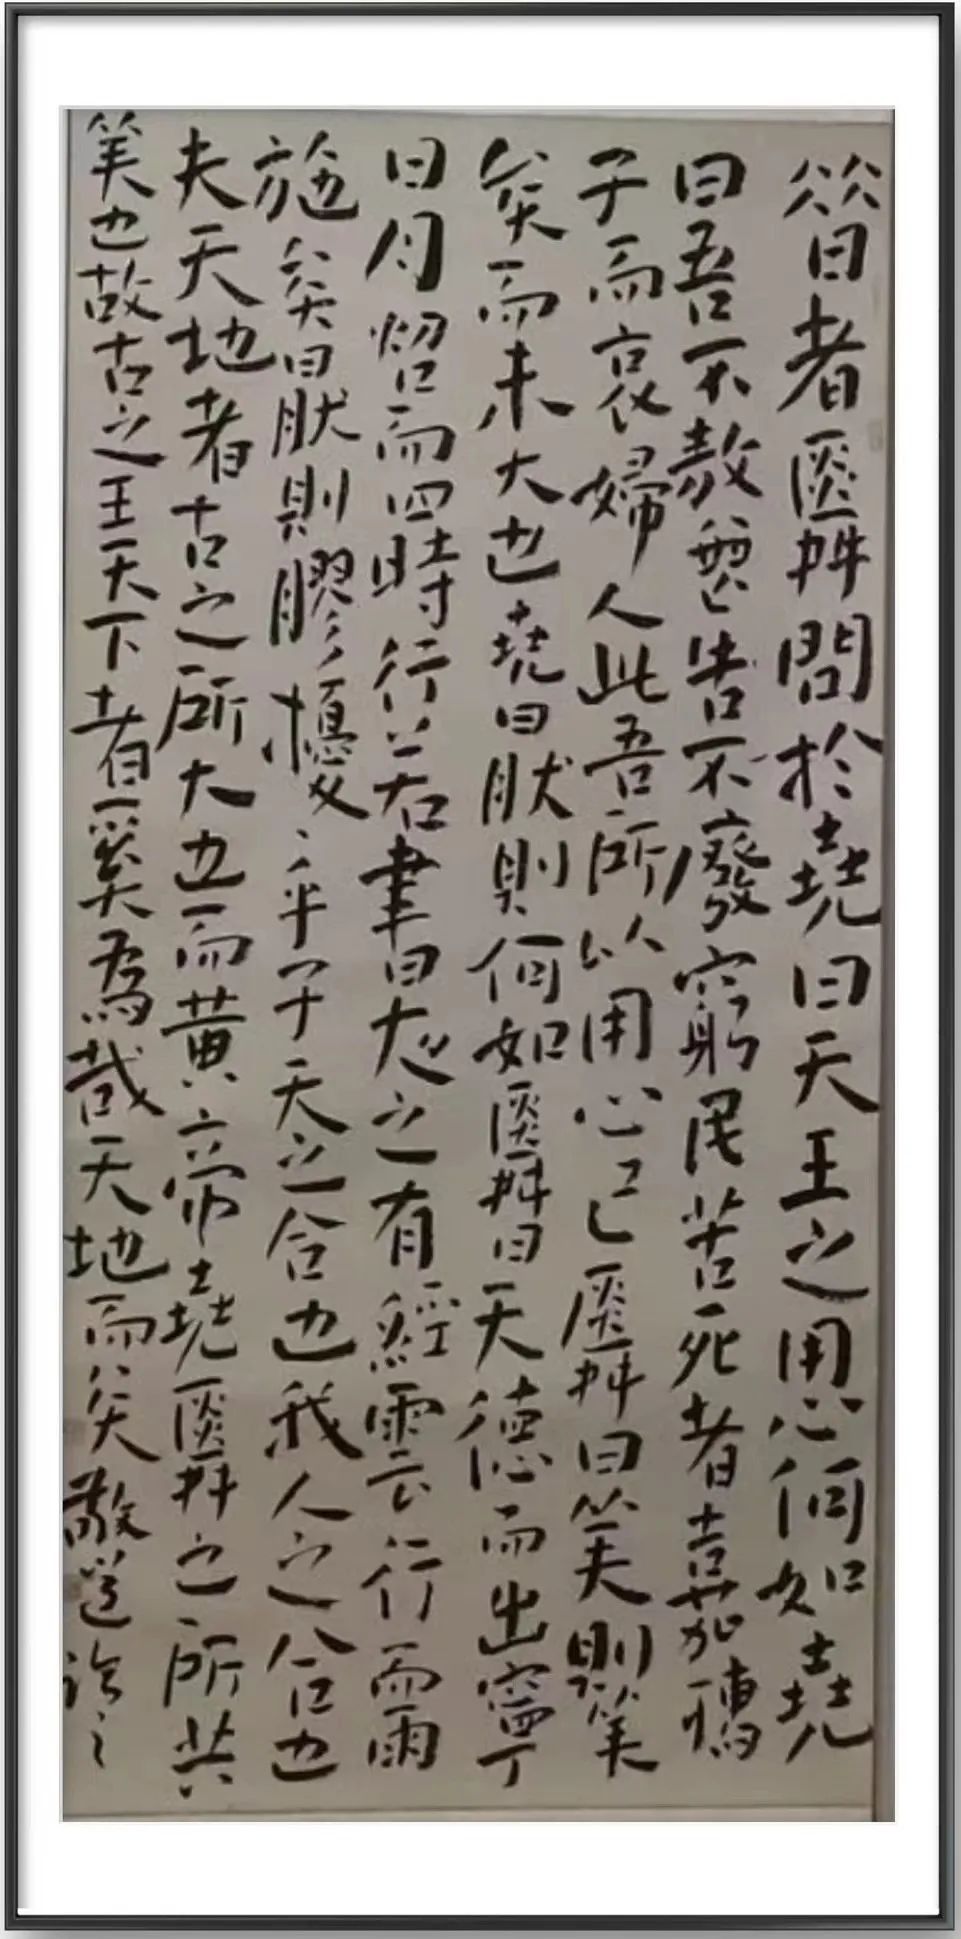 昔者舜問於堯曰天王之用心何如堯
曰吾不敖無告不廢窮民苦死者嘉孺
子而哀婦人此吾所以用心已舜曰美則美
矣而未大也堯曰然則何如舜曰天德而出寧
日月照而四時行若晝夜之有經雲行而雨
施矣曰然則膠擾〻乎子天之合也我人之合也
夫天地者古之所大也而黃帝堯舜之所共
美也故古之王天下者奚為哉天地而矣敬